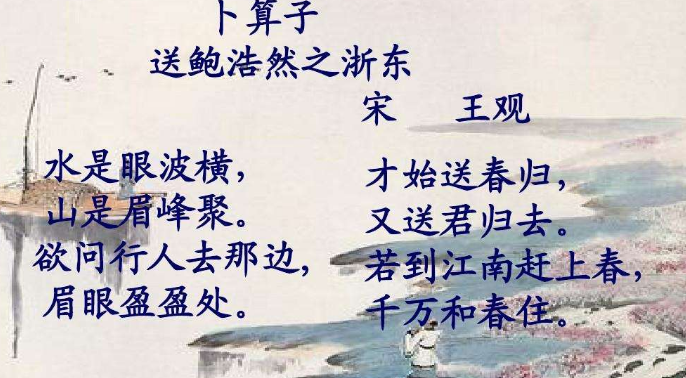 卜算子
送鲍浩然之浙东
宋 王观
水是眼波横，
山是眉峰聚。
欲问行人去那边，
眉眼盈盈处。
才始送春归，
又送君归去。
若到江南赶上春，
千万和春住。